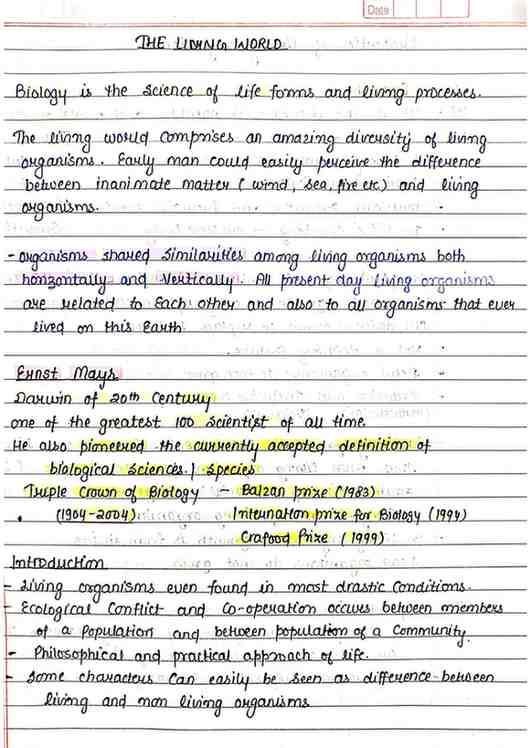 Date
THE LIVING WORLD
Biology is the science of life forms and living processes.
The living world comprises an amazing diversity of living
organisms. Early man could easily perceive the difference
between inanimate matter ( wind, sea, fire etc) and living
organisms.
- organisms shared similarities among living organisms both
horizontally and vertically. All present day living organisms
are related to Each other and also to all organisms that ever
lived on this Earth
Ernst Mayr
Darwin of 20th Century
one of the greatest 100 scientist of all time.
He also pioneered the currently accepted definition of
biological sciences. | species
Triple Crown of Biology - Balzan prize (1983)
(1904-2004) Internation prize for Biology (1994)
Crafood Prize (1999)
Introduction
- Living organisms even found in most drastic conditions.
- Ecological Conflict and Co-operation occurs between members
of a population and between population of a Community.
- Philosophical and practical approach of life.
- Some characters can easily be seen as difference between
living and non living organisms